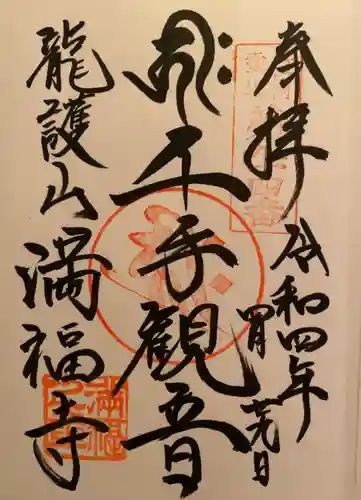 奉拝
令和四年
四月
廿九日
千手観音
龍護山
満福寺